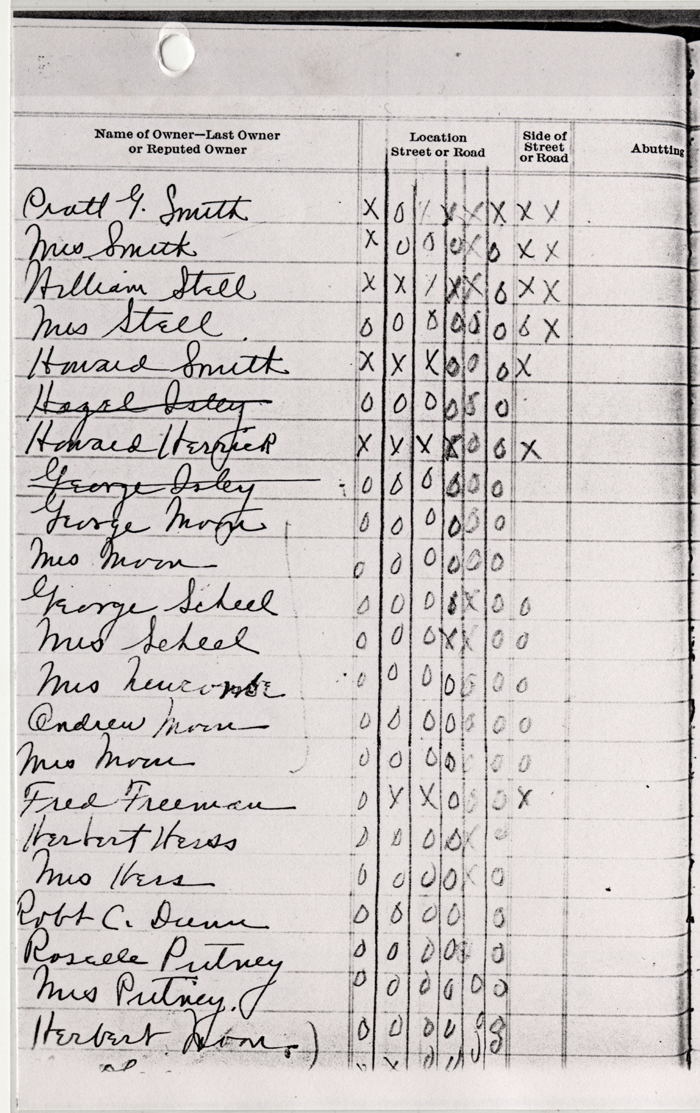 Name of Owner—Last Owner or Reputed Owner
Location Street or Road
Side of Street or Road
Abutting
Pratt G. Smith X 0 / X X X X X
Mrs Smith X 0 0 0 X 0 X X
William Stell X X / X X 0 X X
Mrs Stell. 0 0 0 0 0 0 0 X
Howard Smith X X X 0 0 0 X
Hazel Isley 0 0 0 0 0 0
Howard Herrick X X X X 0 0 X
George Isley 0 0 0 0 0 0
George Moon 0 0 0 0 0 0
Mrs Moon 0 0 0 0 0 0
George Scheel 0 0 0 0 X 0 0
Mrs Scheel 0 0 0 X X 0 0
Mrs Newcombe 0 0 0 0 0 0 0
Andrew Moon 0 0 0 0 0 0 0
Mrs Moon 0 0 0 0 0 0 0
Fred Freeman 0 X X 0 0 0 X
Herbert Herss 0 0 0 0 X 0
Mrs Herss 0 0 0 0 X 0
Robt C. Dunn 0 0 0 0 0
Roscele Putney 0 0 0 0 0
Mrs Putney. 0 0 0 0 0 0
Herbert Moon. 0 0 0 0